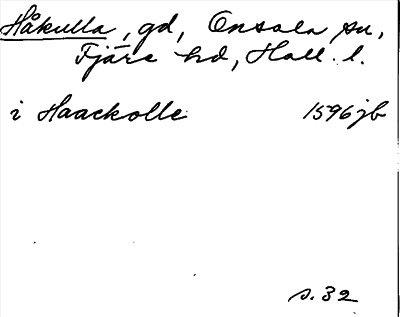 Håkulla, gd, Onsala sn,
Fjäre hd, Hall. l.
i Haackolle 1596 jb
s. 32